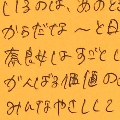 しるのは、あのと
からだな〜と日
奈良女はすごとし
がんばる価値の
みんなやさしくて